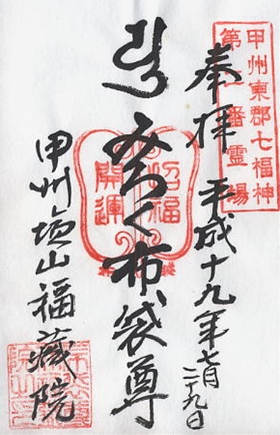 甲州東郡七福神
第一番霊場
奉拝 平成十九年七月二十九日
みろく布袋尊
招福
開運
甲州塩山福蔵院